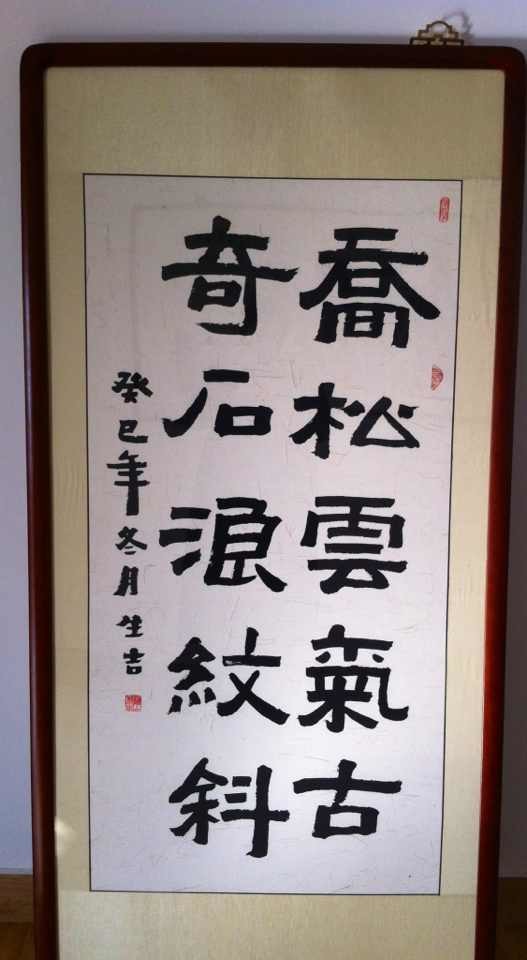 喬松雲氣古
奇石浪紋斜
癸巳年冬月生吉